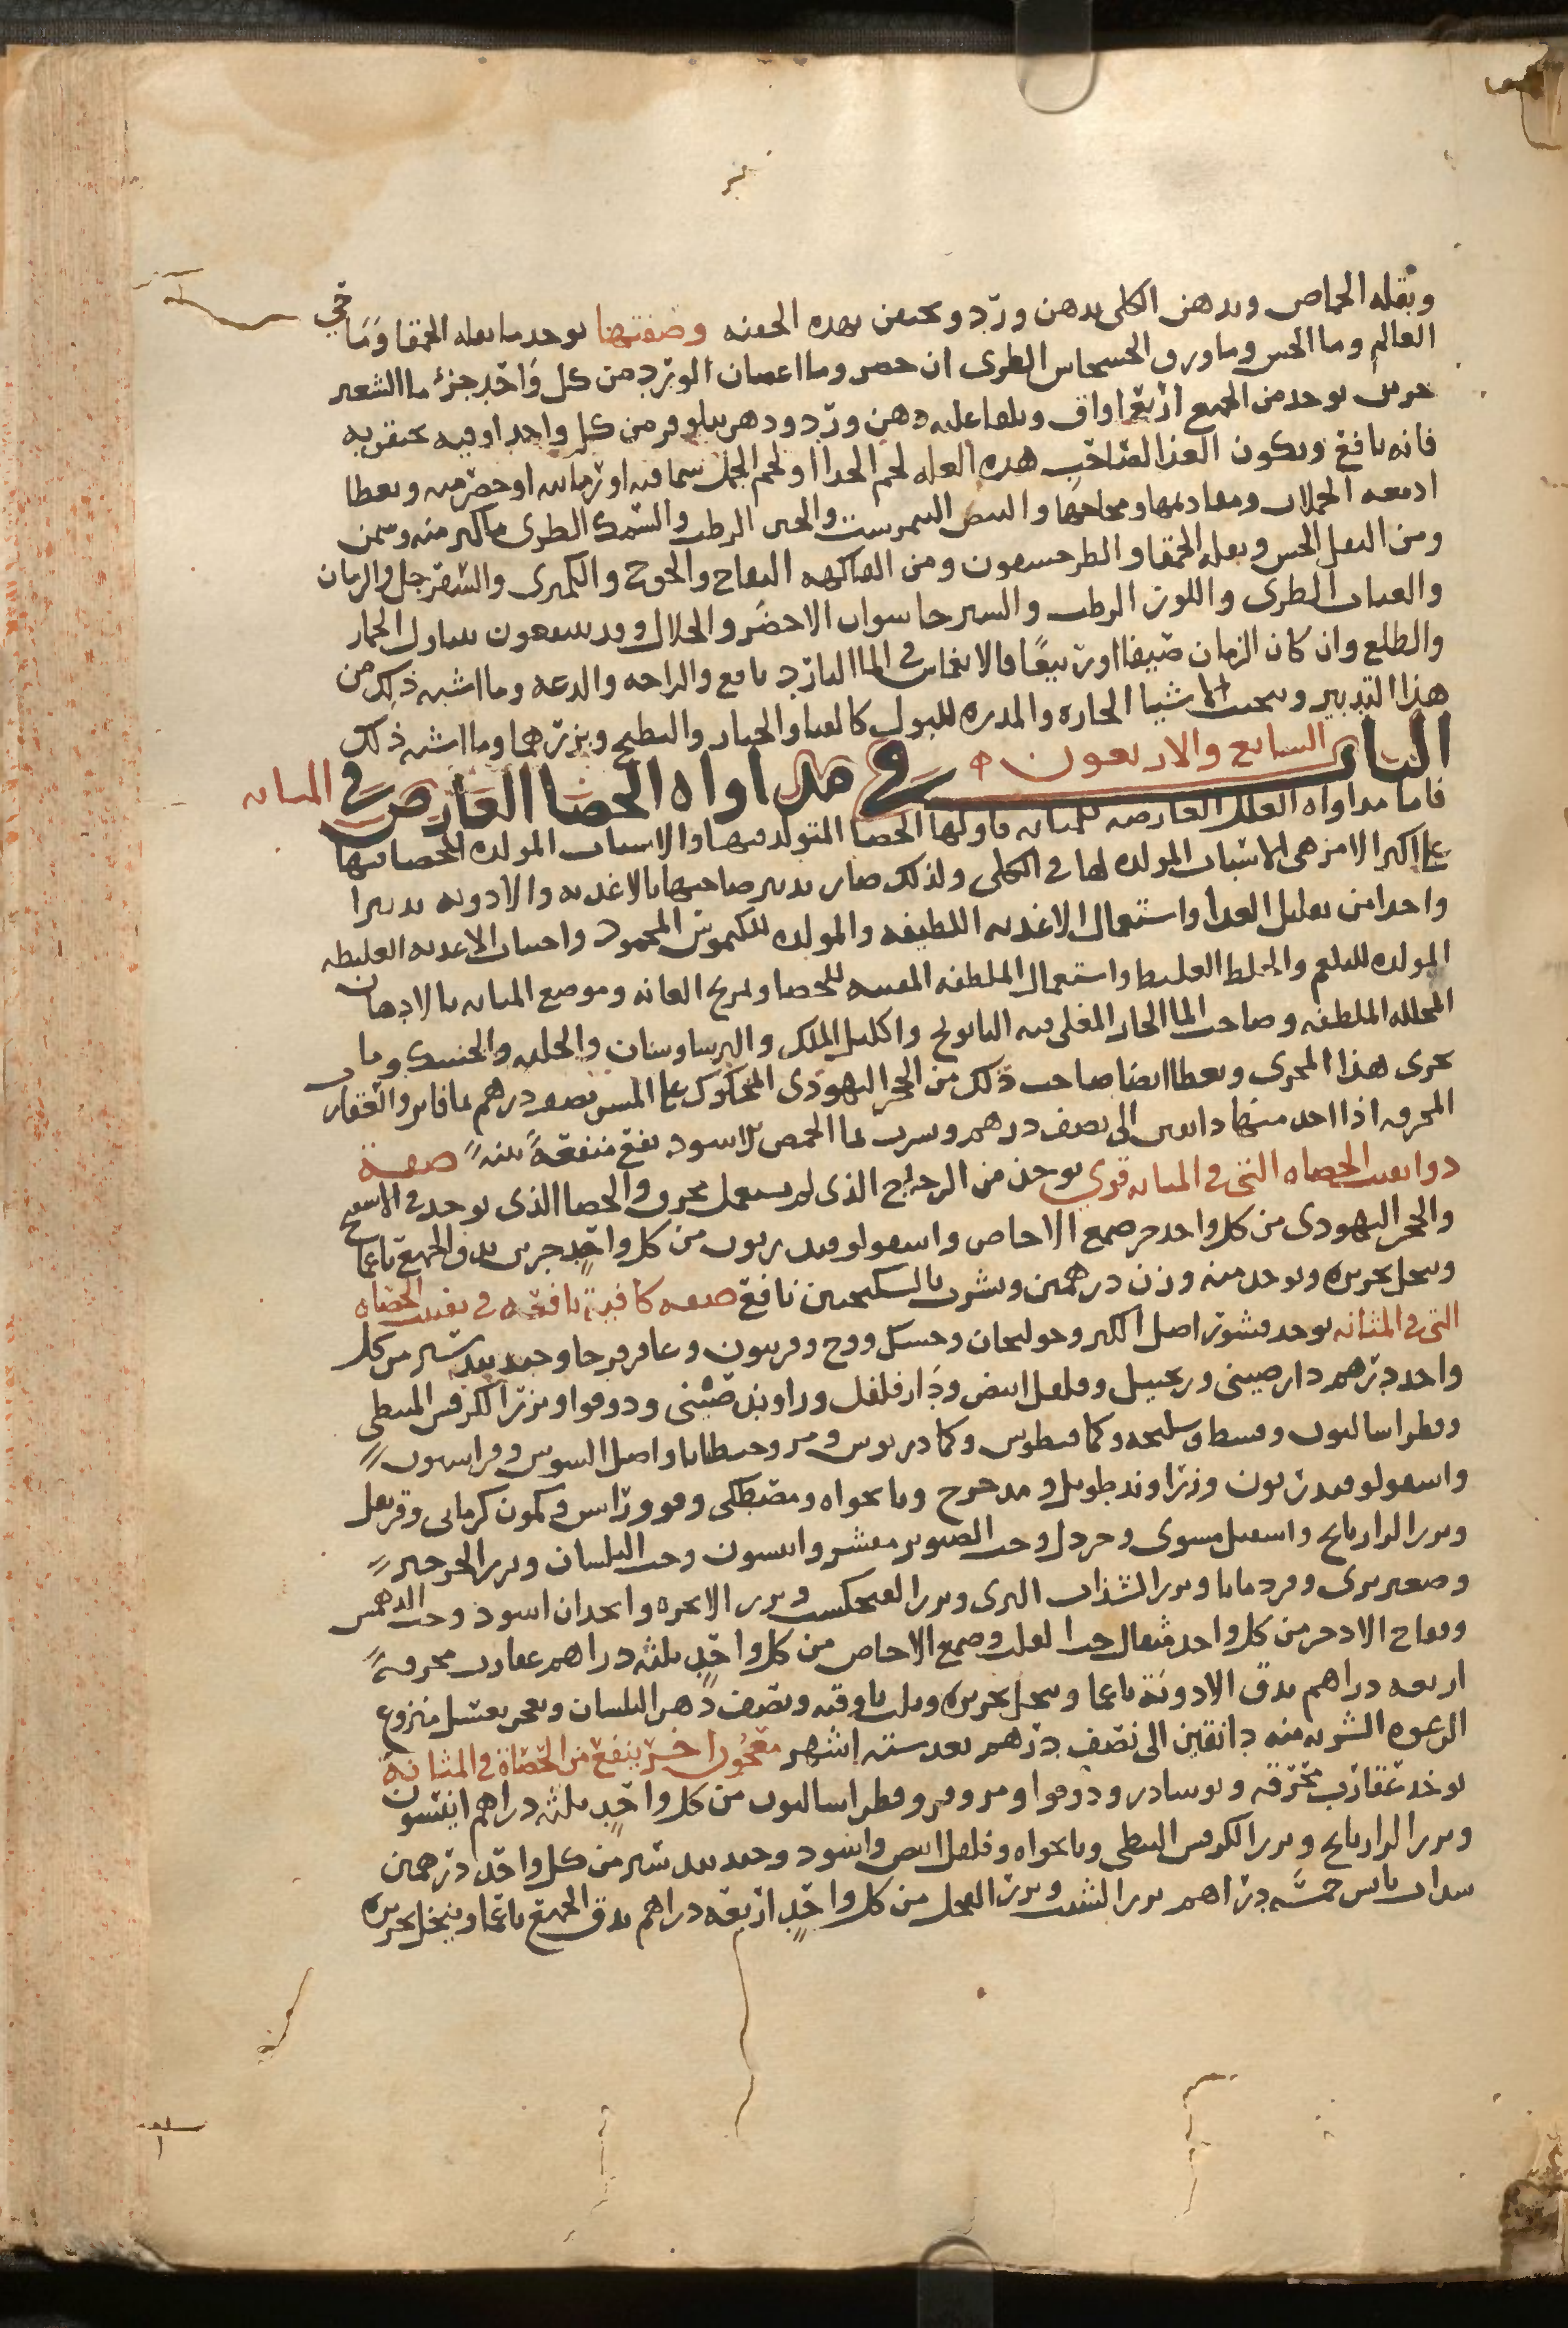 وبقله الحماض ويدهن الكلى بدهن ورد ويحتقن بهذه الحقنه وصفتها يوخذ ما بقله الحمقا وما حي
العالم وما الخس وما ورق الخشخاش الطرى ان حضر وما اغصان الورد من كل واحد جزء ما الشعير
جزين يوخذ من الجميع اربع اواق ويلقا عليه دهن ورد ودهن نيلوفر من كل واحد اوقيه يحتقن به
فانه نافع ويكون الغذا لصاحب هذه العله لحم الجدا او لحم الحجل سماقيه او رمانيه او حصرميه ويعطا
ادمغه الحملان ومقادمها ومخاخها والبيض النيمرشت والجبن الرطب والسمك الطرى ما كبر منه وسمن
ومن البقل الخس وبقله الحمقا والطرحشقون ومن الفاكهه التفاح والخوخ والكمثرى والسفرجل والرمان
والعناب الطرى واللوز الرطب والسيرجاسوان الاخضر والخلال وقد ينتفعون بتناول الجمار
والطلع وان كان الزمان صيفا او ربيعًا فالانغماس فى الما البارد نافع والراحه والدعه وما اشبه ذلك من
هذا التدبير ويجتنب الاشيا الحاره والمدره للبول كالقثا والخيار والبطيخ وبزرهما وما اشبه ذلك
الباب السابع والاربعون فى مداواه الحصا العارض فى المثانه
فاما مداواه العلل العارضه للمثانه فاولها الحصا المتولد فيها والاسباب المولده للحصا فيها
على اكثر الامر هى الاسباب المولده لها فى الكلى ولذلك صار تدبير صاحبها بالاغذيه والادويه تدبيرا
واحدا من تقليل الغذا واستعمال الاغذيه اللطيفه والمولده للكيموس المحمود واجتناب الاغذيه الغليظه
المولده للبلغم والخلط الغليظ واستعمال الملطفه المفتته للحصا وتمريخ العانه وموضع المثانه بالادهان
المحلله الملطفه وصاحب الما الحار المغلى فيه البابونج واكليل الملك والبرسياوشان والحلبه والحسك وما
يجرى هذا المجرى ويعطا ايضا صاحب ذلك من الحجر اليهودى المحكوك على المسن نصف درهم بما فاتر والعقارب
المحرقه اذا اخذ منها دانقين الى نصف درهم وشرب بما الحمص الاسود نفع منفعةً بينةً صفة
دوا يفتت الحصاه التى فى المثانه قوي يوخذ من الزجاج الذى لم يستعمل محرق والحصا الذى يوجد فى الاسفنج
والحجر اليهودى من كل واحد جز صمغ الاجاص واسقولوقندريون من كل واحدٍ جزين يدق الجميع ناعما
وينخل بحريره ويوخذ منه وزن درهمين ويشرب بالسكنجبين نافع صفه كافية نافعه فى تفتيت الحصاه
التى فى المثانه يوخذ قشور اصل الكبر وخولنجان وحسك ووج وفربيون وعاقرقرحا وجندبيدستر من كل
واحد درهم دارصينى وزنجبيل وفلفل ابيض ودارفلفل وراوند صينى ودوقوا وبزر الكرفس النبطى
وفطراساليون وقسط وسليخه وكمافيطوس وكمادريوس ومر وجنطيانا واصل السوس وفراسيون
واسقولوقندريون وزراوند طويل ومدحرج ونانخواه ومصطكى وفو وراسن وكمون كرمانى وقرنفل
وبزر الرازيانج واسقيل مشوى وخردل وحب الصنوبر مقشر وانيسون وحب البلسان وبزر الجرجير
وصعتر برى وقردمانا وبزر السذاب البرى وبزر الفنجنكشت وبزر الانجره وانجدان اسود وحب الدهمس
وفقاح الاذخر من كل واحد مثقال حب القلت وصمغ الاجاص من كل واحدٍ ثلثه دراهم عقارب محرقةً
اربعه دراهم يدق الادويَة ناعما وينخل بحريره ويلت باوقيه ونصف دهن البلسان ويعجن بعسل منزوع
الرغوه الشربه منه دانقين الى نصف درهم بعد سته اشهر معجون اخر ينفع من الحصاة فى المثانة
يوخذ عقارب محرقه ونوشادر ودوقوا ومر وفو وفطراساليون من كل واحدٍ ثلثه دراهم انيسون
وبزر الرازيانج وبزر الكرفس النبطى ونانخواه وفلفل ابيض واسود وجندبيدستر من كل واحد درهمين
سداب يابس خمسَه دراهم بزر الشبت وبزر الفجل من كل واحدٍ اربعه دراهم يدق الجميع ناعما وينخل بحريره